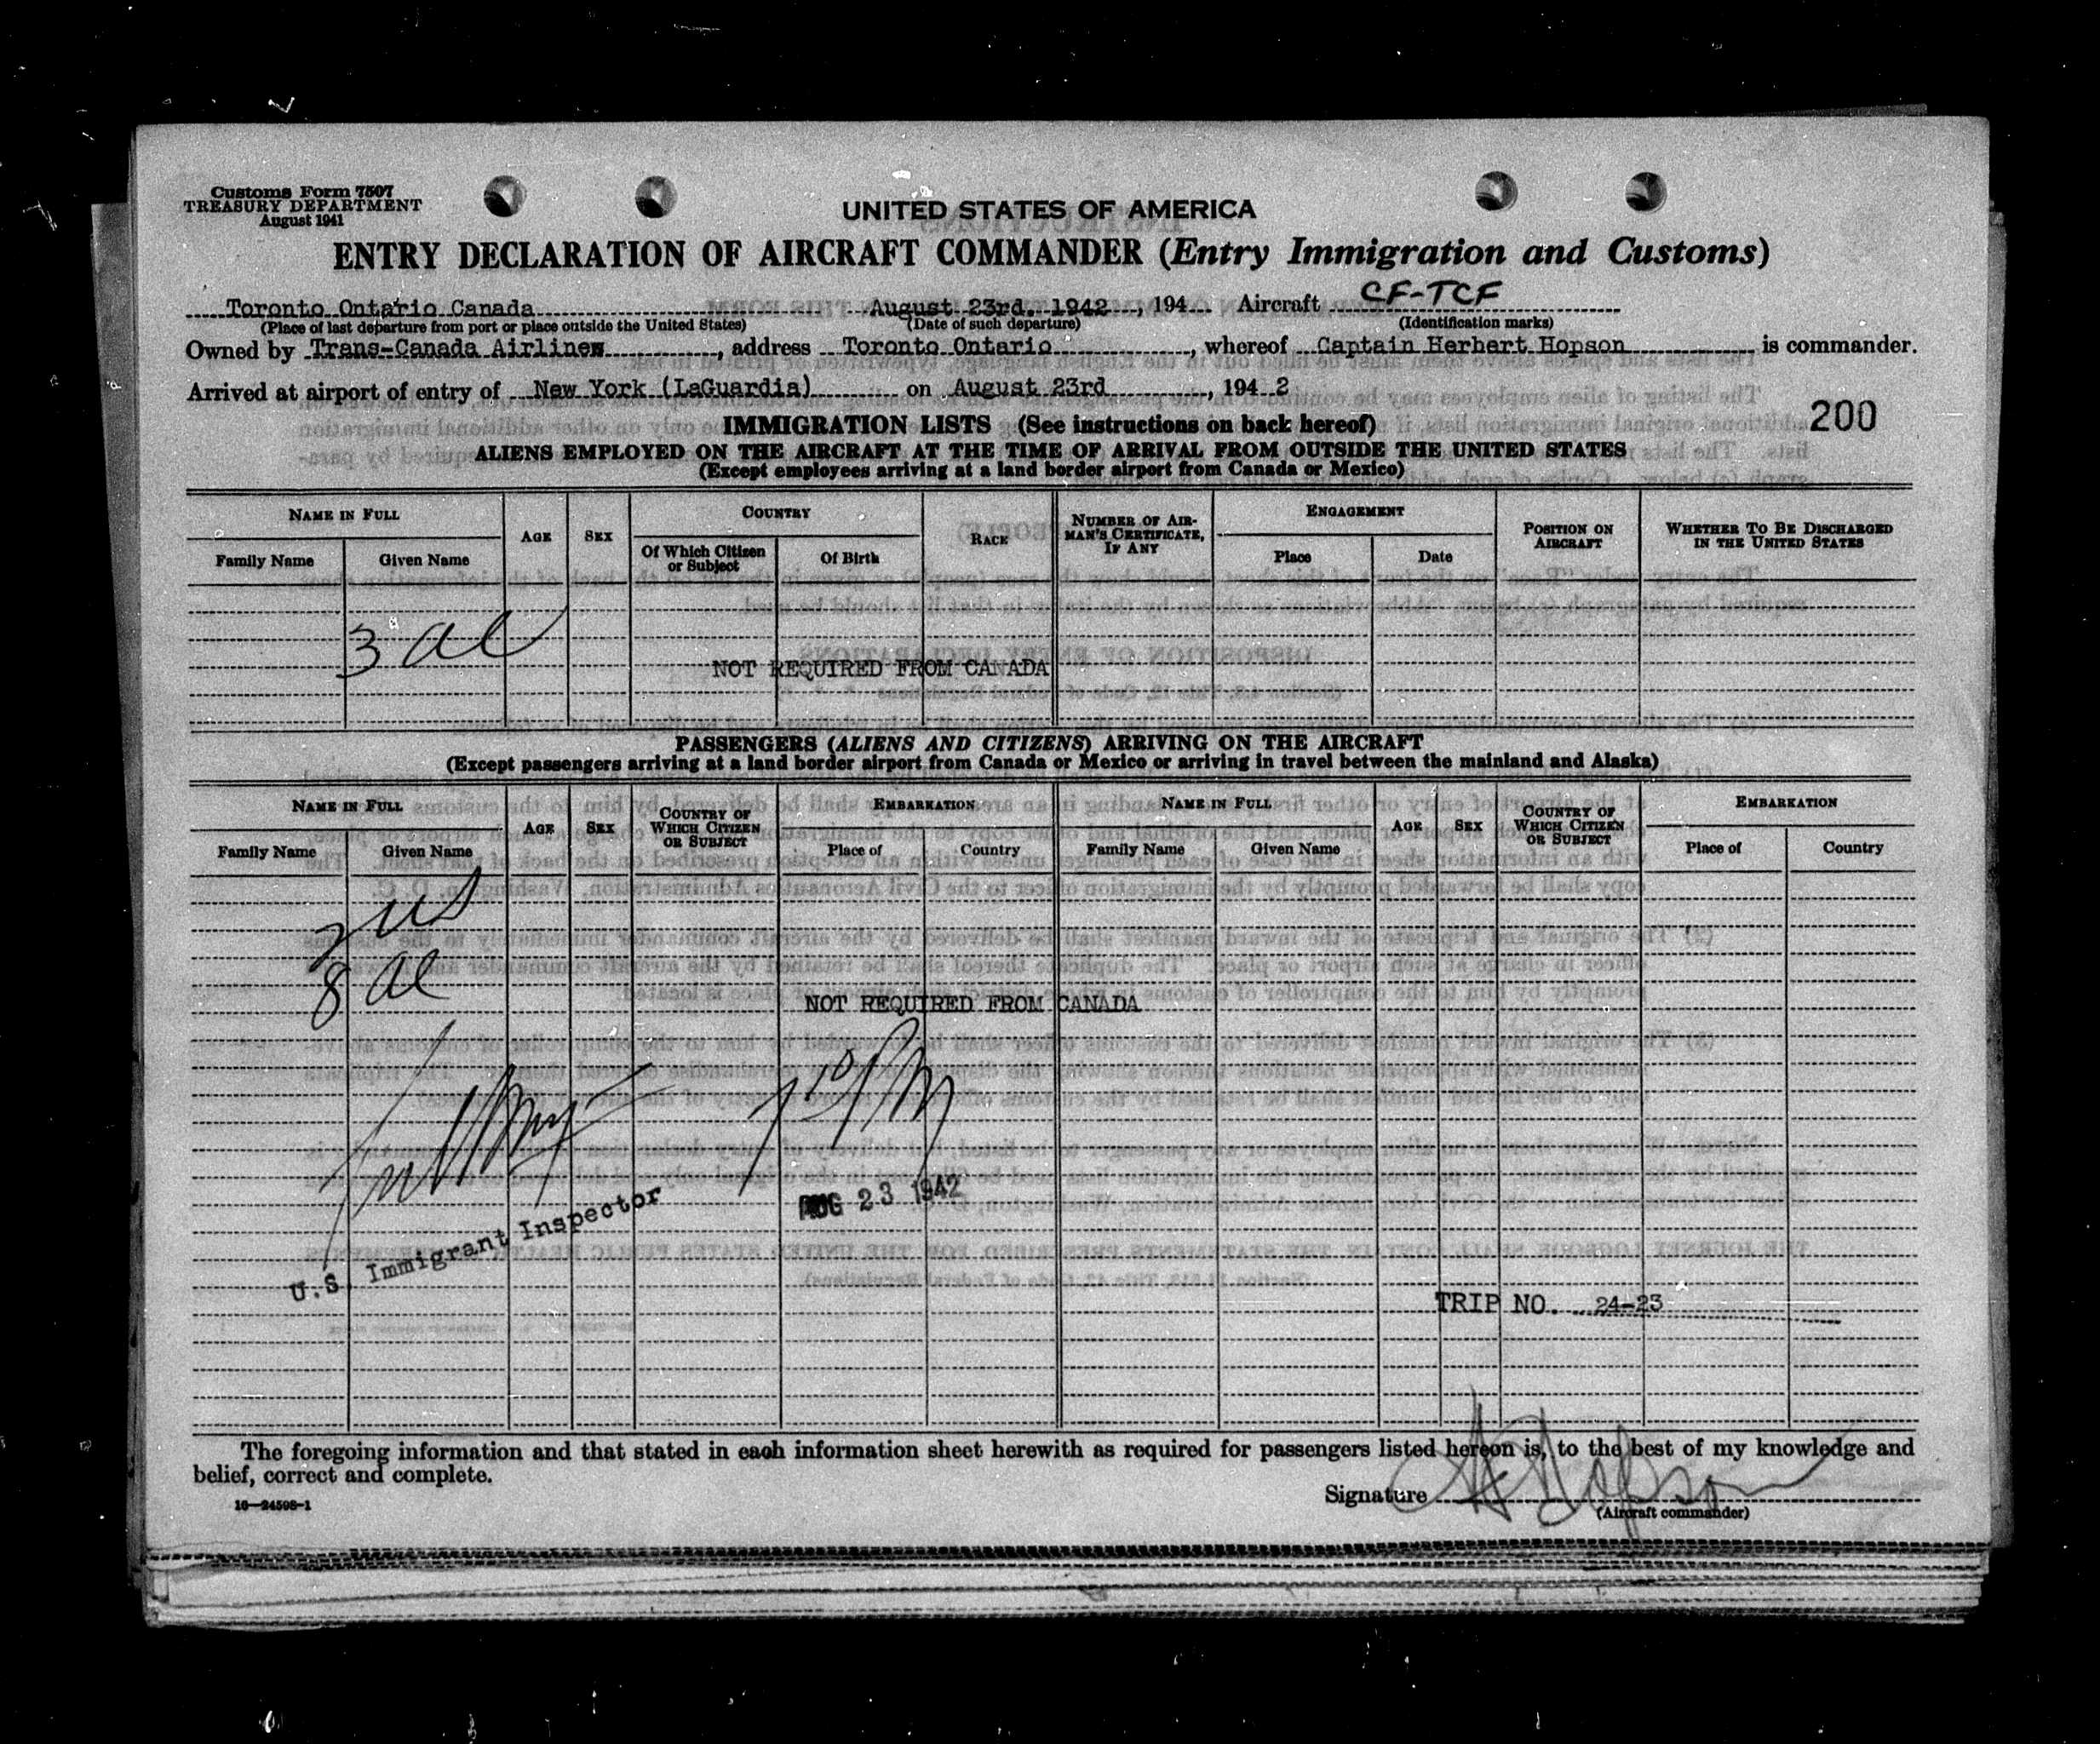 Customs Form 7507
TREASURY DEPARTMENT
August 1941
UNITED STATES OF AMERICA
ENTRY DECLARATION OF AIRCRAFT COMMANDER (Entry Immigration and Customs)
Toronto Ontario Canada August 23rd. 1942, 194 Aircraft CF-TCF
(Place of last departure from port or place outside the United States) (Date of such departure) (Identification marks)
Owned by Trans-Canada Airlines, address Toronto Ontario, whereof Captain Herbert Hopson is commander.
Arrived at airport of entry of New York (LaGuardia) on August 23rd, 194 2
200
IMMIGRATION LISTS (See instructions on back hereof)
ALIENS EMPLOYED ON THE AIRCRAFT AT THE TIME OF ARRIVAL FROM OUTSIDE THE UNITED STATES
(Except employees arriving at a land border airport from Canada or Mexico)
NAME IN FULL AGE SEX COUNTRY RACE NUMBER OF AIRMAN'S CERTIFICATE, IF ANY ENGAGEMENT POSITION ON AIRCRAFT WHETHER TO BE DISCHARGED IN THE UNITED STATES
Family Name Given Name Of Which Citizen or Subject Of Birth Place Date
3 al
NOT REQUIRED FROM CANADA
PASSENGERS (ALIENS AND CITIZENS) ARRIVING ON THE AIRCRAFT
(Except passengers arriving at a land border airport from Canada or Mexico or arriving in travel between the mainland and Alaska)
NAME IN FULL AGE SEX COUNTRY OF WHICH CITIZEN OR SUBJECT EMBARKATION NAME IN FULL AGE SEX COUNTRY OF WHICH CITIZEN OR SUBJECT EMBARKATION
Family Name Given Name Place of Country Family Name Given Name Place of Country
2 us
8 al
NOT REQUIRED FROM CANADA
AUG 23 1942
U.S. Immigrant Inspector
TRIP NO. 24-23
The foregoing information and that stated in each information sheet herewith as required for passengers listed hereon is, to the best of my knowledge and
belief, correct and complete.
Signature H Hopson
(Aircraft commander)
16—24598-1